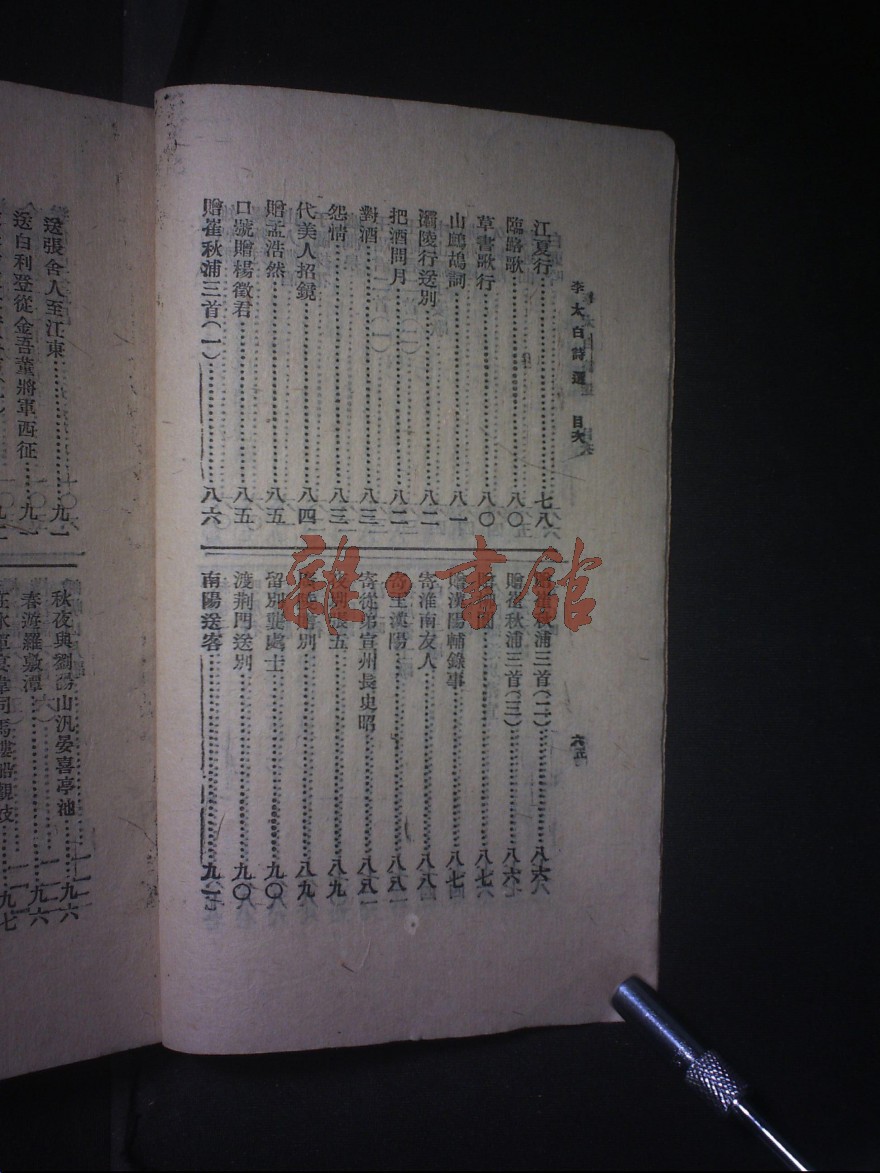 李太白詩選 目次
江夏行……七八
臨路歌……八〇
草書歌行……八〇
山鷓鴣詞……八一
灞陵行送別……八二
把酒問月……八二
對酒……八三
怨情……八三
代美人招鏡……八四
贈孟浩然……八五
口號贈楊徵君……八五
贈崔秋浦三首(一)……八六
崔秋浦三首(二)……八六
贈崔秋浦三首(三)……八六
八七
漢陽輔錄事……八七
寄淮南友人……八八
寄王漢陽……八八
寄從弟宣州長史昭……八八
別張五……八九
別……八九
留別龔處士……九〇
渡荆門送別……九〇
南陽送客……九一
送張舍人至江東……九一
送白利登從金吾董將軍西征……九一
秋夜與劉碭山汎宴喜亭池……九六
春遊羅敷潭……九六
九七
雜·書館